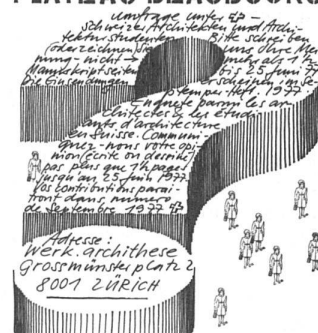 PLATEAU BEAUBOURG
Umfrage unter
Schweizer Architekten und Archi-
tekturstudenten Bitte schreiben
(oder zeichnen) Sie uns Ihre Mei-
nung - nicht mehr als 1 ½
Manuskriptseiten bis 25 Juni 77
Die Einsendungen erscheinen im Se-
ptember Heft. 1977
Enquête parmi les ar-
chitectes & les étudi-
ants d'architecture
en Suisse. Communi-
quez-nous votre opi-
nion (écrite ou dessinée)
pas plus que 1½ pages
jusqu'au 25. Juin 1977
Vos contributions parai-
tront dans numero
de Septembre 1977
Adresse:
Werk. archithese
Grossmünsterplatz 2
8001 ZÜRICH